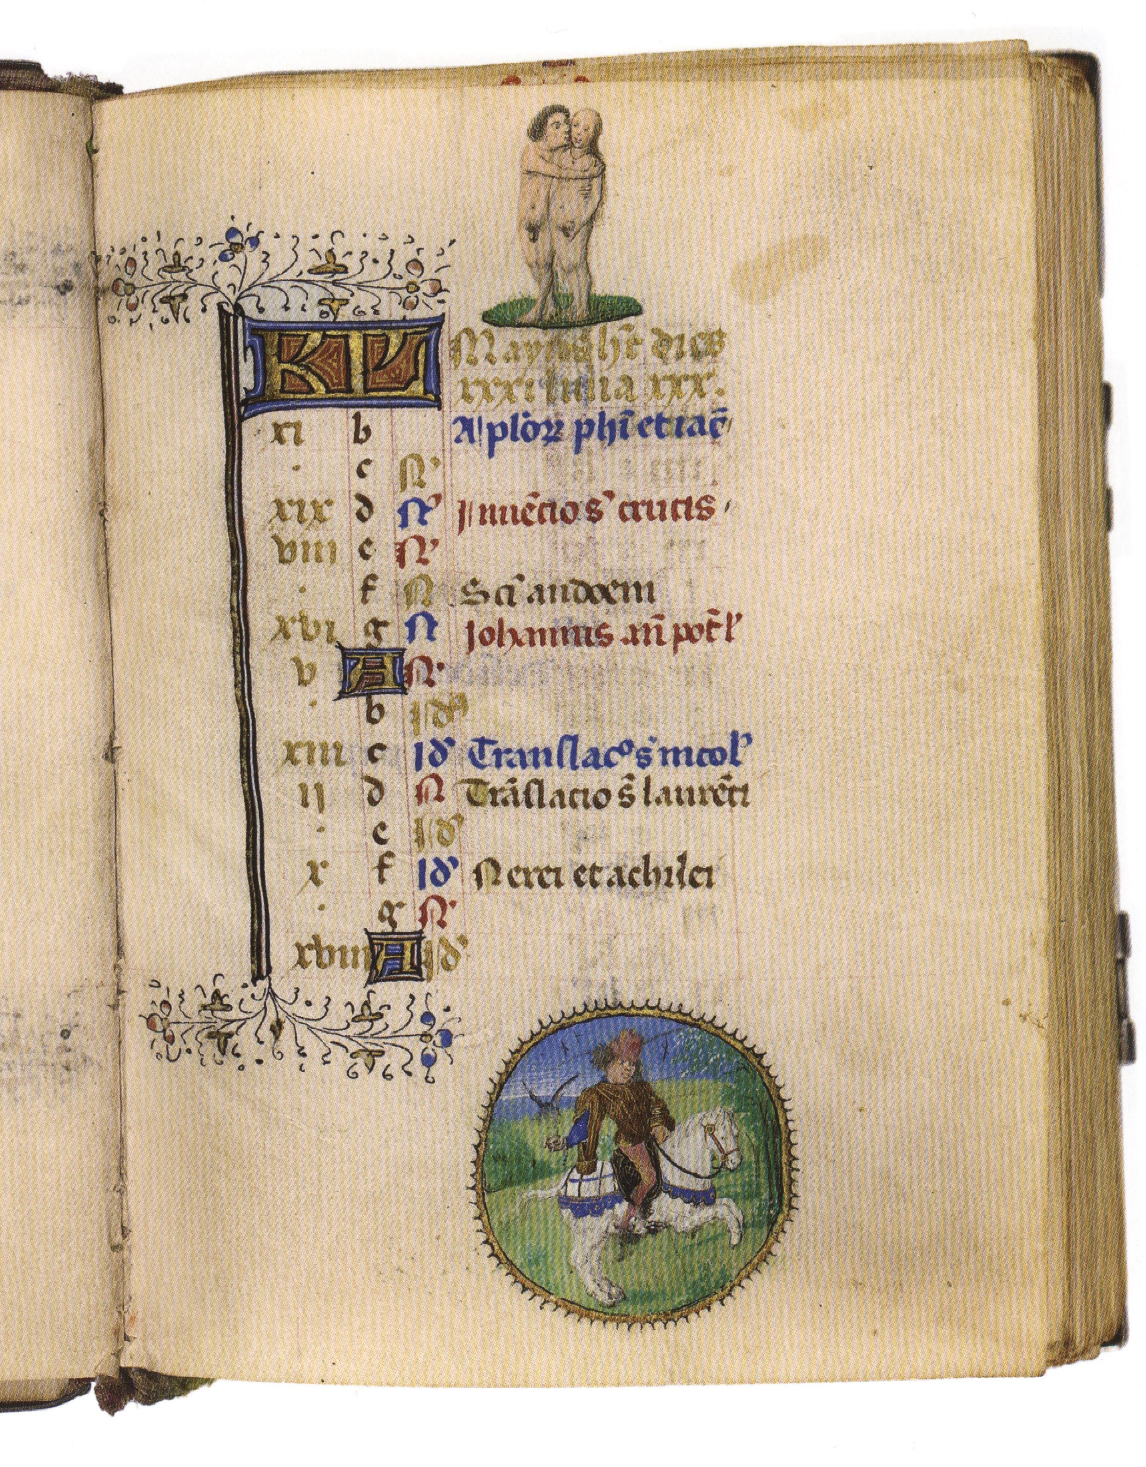 KL Mayus hēt dies
xxxi luna xxx.
xi b Aplōrꝝ phī et iac̄
. c N
xix d N Inuēcio s̄ crucis
viii e N
. f N Sc̄i audoeni
xvi g N Johannis an̄ port̄
v A N
. b Id
xiii c Id Translac̊ s̄ nicol
ii d N Trāslacio s̄ laurēti
. e Id
x f Id Nerei et achilei
. g N
xviii A Id